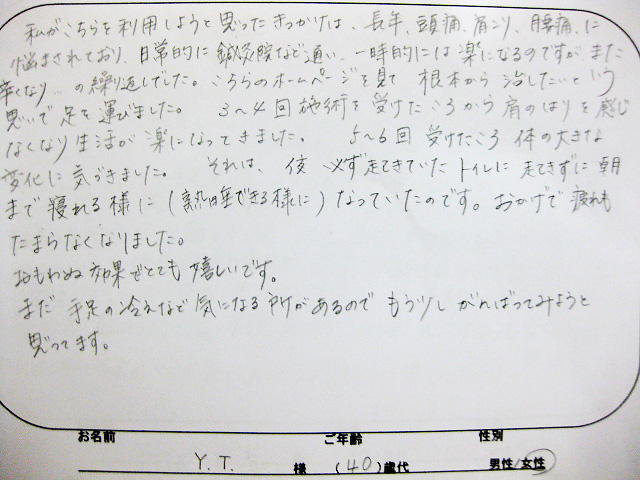 私がこちらを利用しようと思ったきっかけは、長年、頭痛、肩こり、腰痛、に
悩まされており、日常的に鍼灸院など通い、一時的には楽になるのですが、また
辛くなり…の繰り返しでした。こちらのホームページを見て 根本から治したいという
思いで足を運びました。 3〜4回施術を受けたころから肩のはりを感じ
なくなり生活が楽になってきました。 5〜6回受けたころ 体の大きな
変化に気づきました。 それは、夜 必ず起きていたトイレに 起きずに朝
まで寝れる様に(熟睡できる様に)なっていたのです。おかげで疲れも
たまらなくなりました。
おもわぬ効果でとても嬉しいです。
まだ 手足の冷えなど気になる所があるので もう少しがんばってみようと
思ってます。
お名前 ご年齢 性別
Y.T. 様 (40)歳代 男性/女性